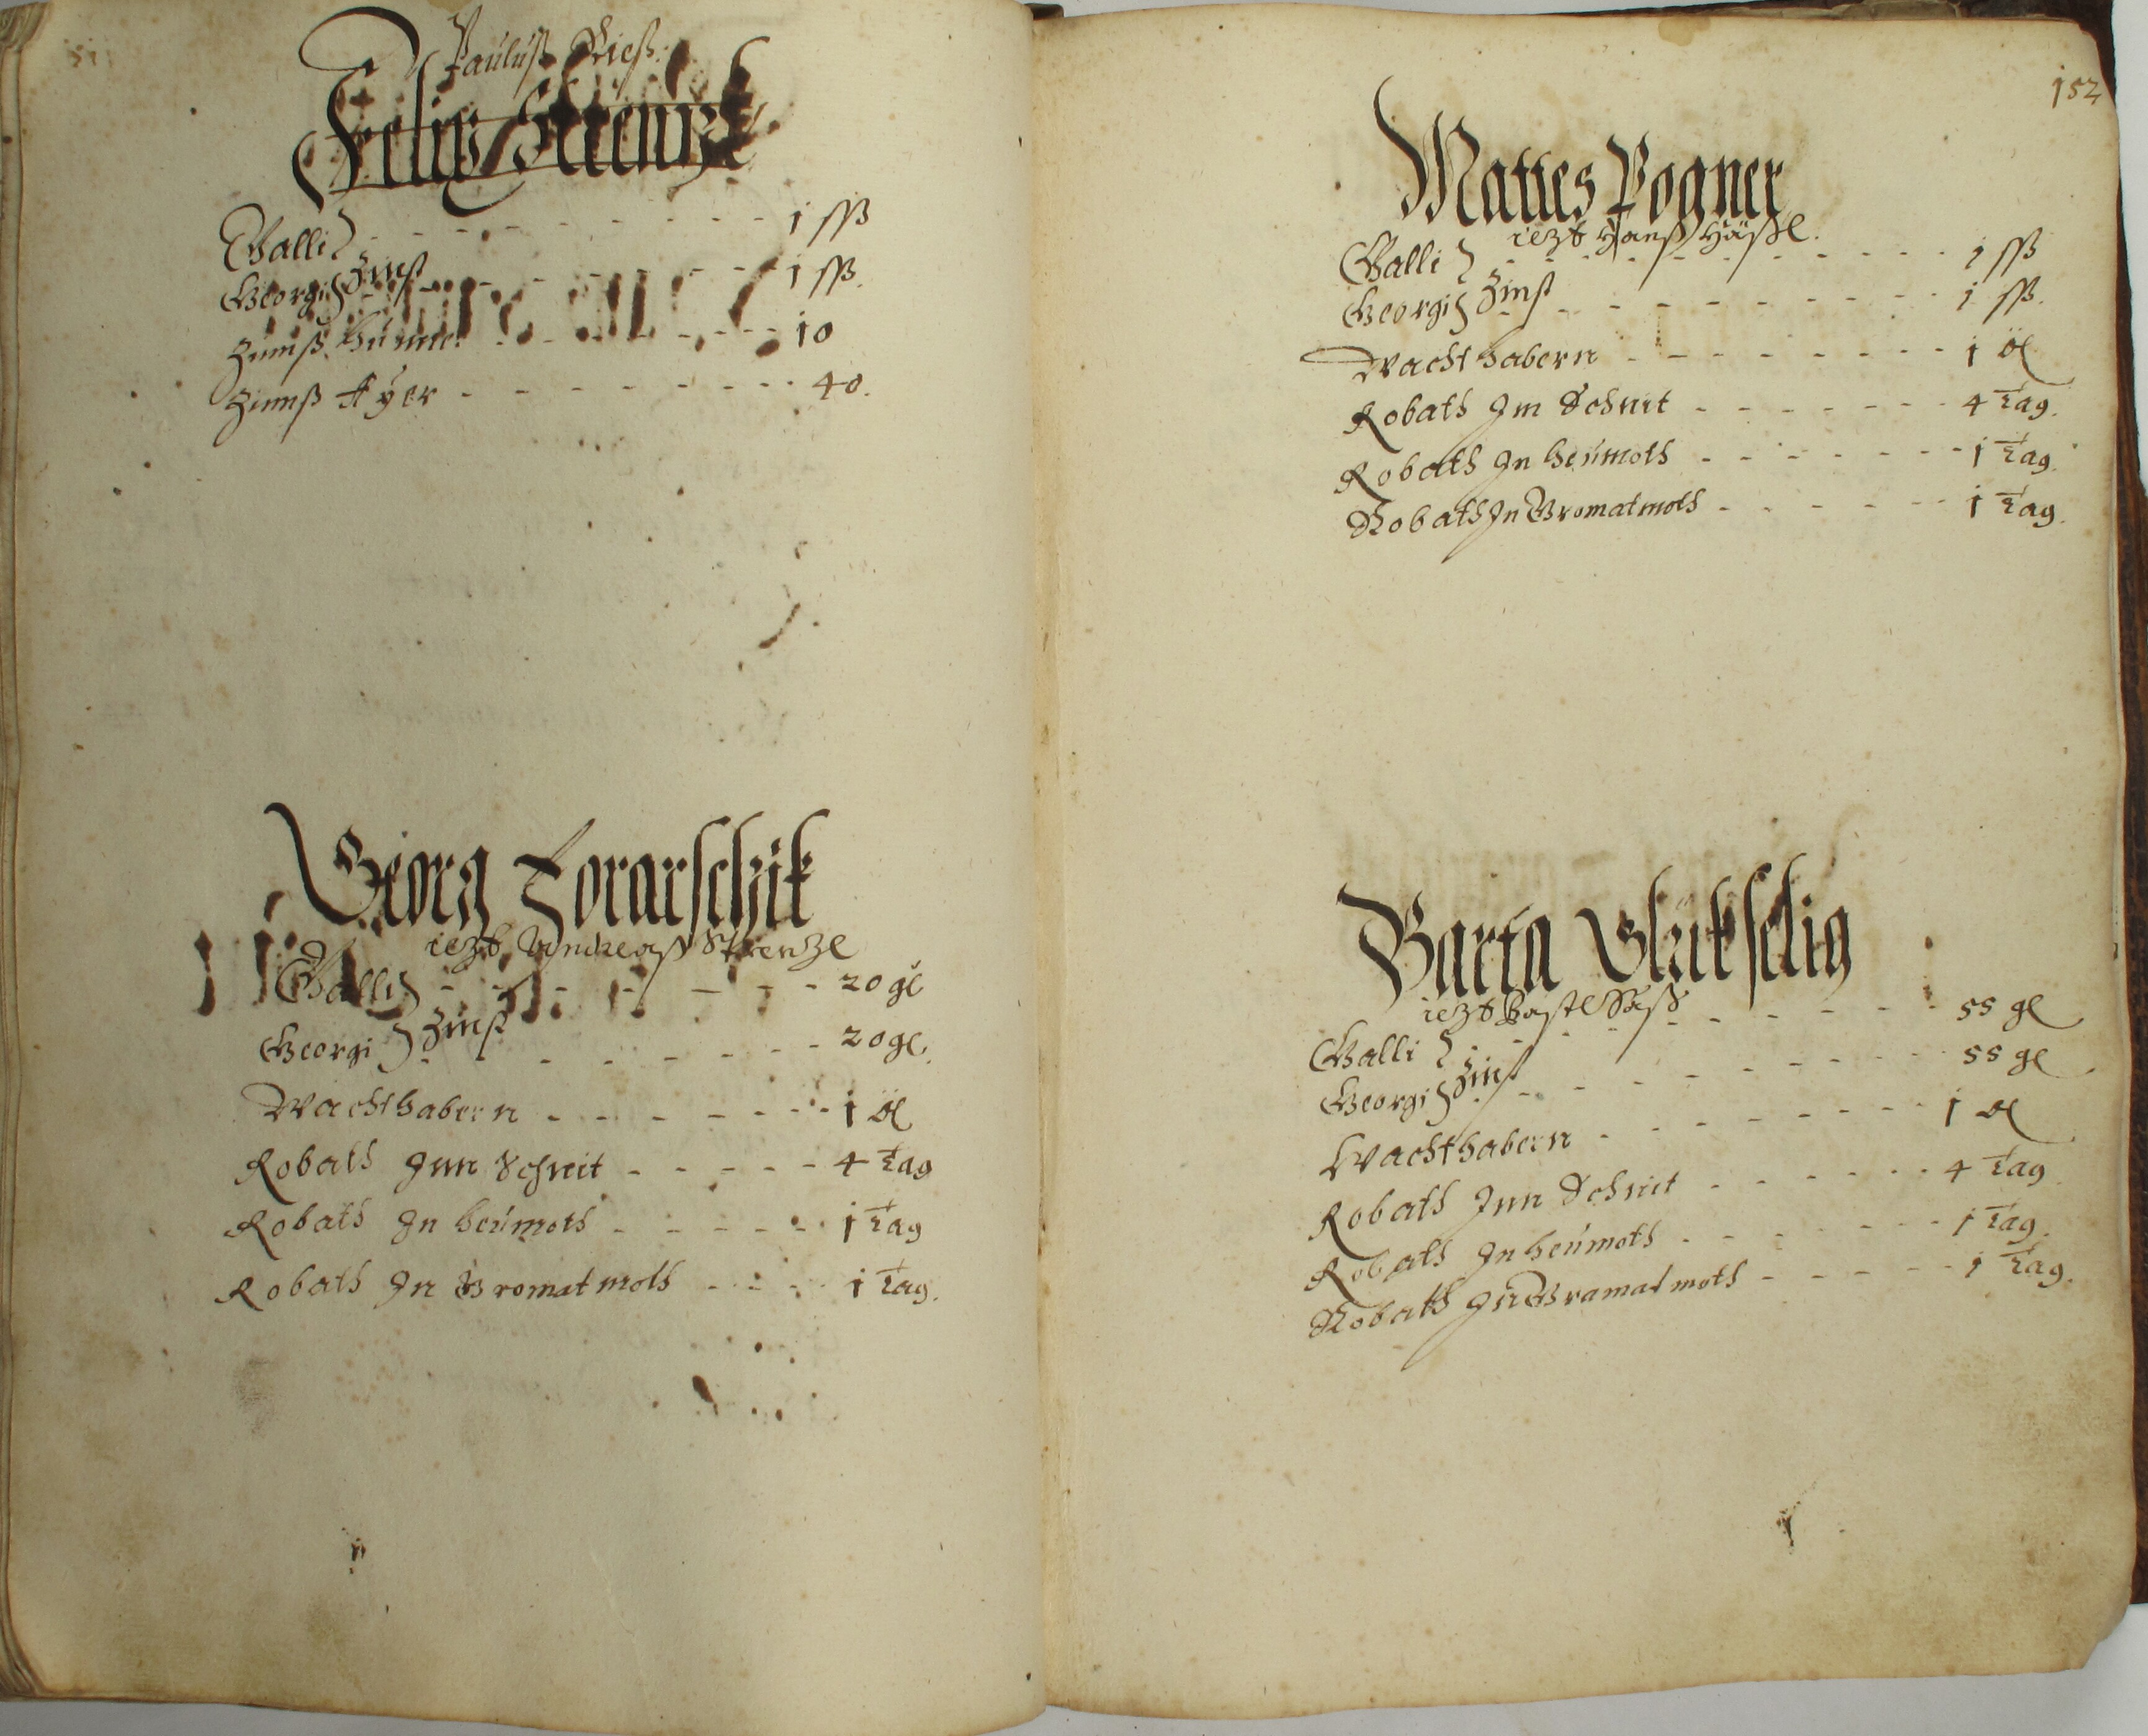 Pauluß Rieß.
Felix Strenzl
Galli } - - - - - - - - 1 ſſß
Georgi } Zinß - - - - - - 1 ſſß.
Zinnß hüner - - - - - - 10
Zinnß Ayer - - - - - - - - 40.
Georg Torarschik
iezt Andreaß Strenzl
Galli } - - - - - - - 20 gl
Georgi } Zinß - - - - - - - 20 gl.
Wachthabern - - - - - - - 1 öl
Robath Inn Schnit - - - - - 4 Tag
Robath In heümoth - - - - - 1 Tag
Robath In Gromatmoth - - - - 1 Tag.
152
Mattes Pogner
iezt Hanß Häßl.
Galli } - - - - - - - - - 1 ſſß
Georgi } Zinß - - - - - - - - - 1 ſſß.
Wachthabern - - - - - - - - 1 öl
Robath Im Schnit - - - - - - - 4 Tag.
Robath In heümoth - - - - - - - 1 Tag.
Robath In Gromatmoth - - - - - - 1 Tag.
Barta Glükselig
iezt Bastl
Galli } - - - - - - - - - 55 gl
Georgi } Zinß - - - - - - - - - 55 gl
Wachthabern - - - - - - - - 1 öl
Robath Inn Schnit - - - - - - 4 Tag
Robath In heümoth - - - - - - 1 Tag.
Robath In Gramatmoth - - - - - 1 Tag.